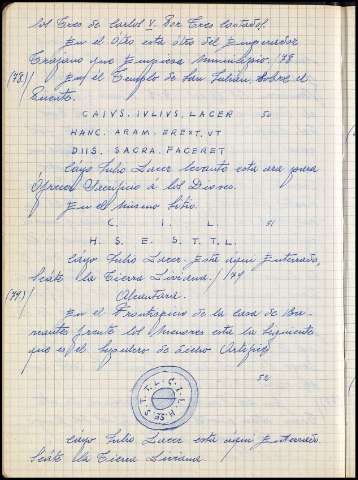 los Tres de Carlos V. Por Tres costados.
En el Otro esta otro del Emperador
Trajano que Empieza Municipio. /78
(78)/ En el Templo de San Julián, Sobre el
Puente.
CAIVS. IVLIVS. LACER 50
HANC. ARAM. EREXT. VT
DIIS. SACRA. FACERET
Cayo Julio Lacer levanto esta ara para
Ofrecer Sacrificio á los Dioses.
En el mismo Sitio.
C. I. L. 51
H. S. E. S. T. T. L.
Cayo Julio Lacer. Está aqui Enterrado,
Seate la Tierra Liviana. / 79
(79)/ Alcantara.
En el Frontispicio de la Casa de
frente los Menores esta la Siguiente
que es el Sepulcro de Artifice
52
C. I. L. H. SE. S. T. T. L.
Cayo Julio Lacer está aqui Enterrado
Seate la Tierra Liviana.